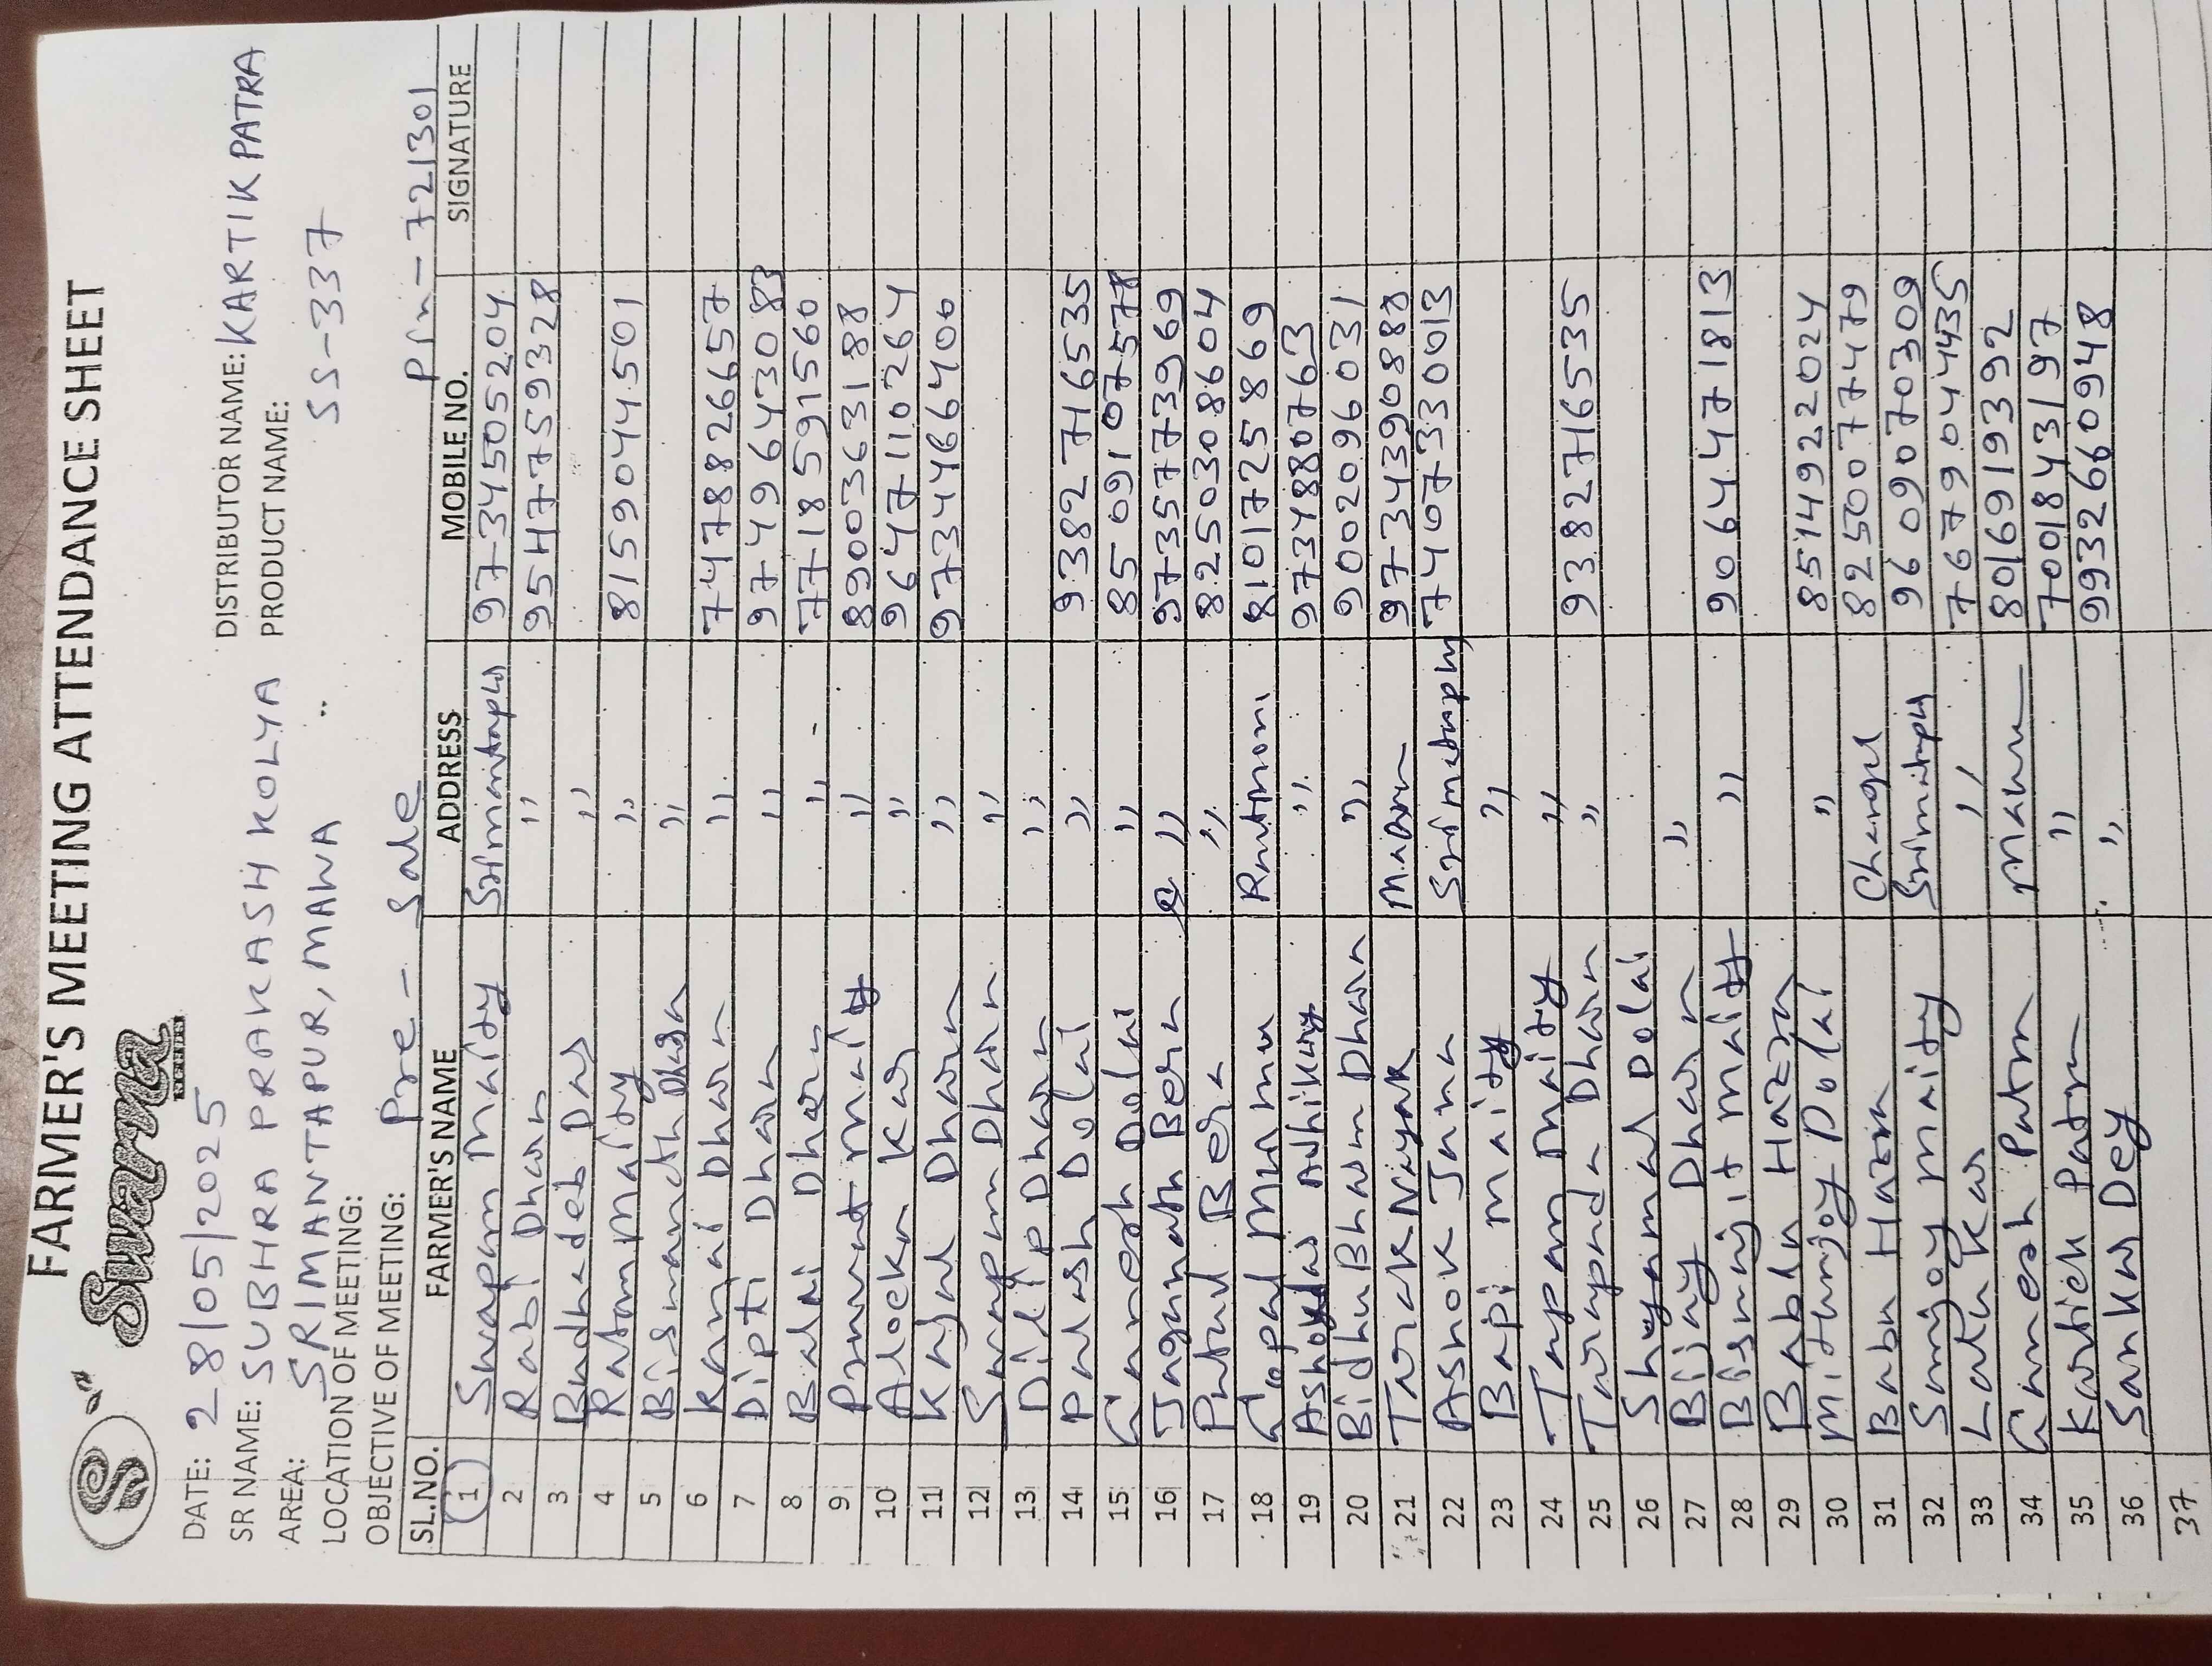 FARMER'S MEETING ATTENDANCE SHEET
Swarna
DATE: 28/05/2025
SR NAME: SUBHRA PRAKASH KOLYA DISTRIBUTOR NAME: KARTIK PATRA
AREA: SRIMANTAPUR, MAWA PRODUCT NAME: SS-337
LOCATION OF MEETING:
OBJECTIVE OF MEETING: Pre - Sale Pin - 721301
SL.NO. FARMER'S NAME ADDRESS MOBILE NO. SIGNATURE
1 Swapam Maity Srimantapur 9734505204
2 Rabi Dhara " 9547759328
3 Budhadeb Das "
4 Ratam Maity " 8159044501
5 Bismanath Dhara "
6 Kamai Dhara " 7478826657
7 Dipti Dhara " 9749643083
8 Balai Dhara " 7718591560
9 Pramat Maity " 8900363188
10 Aloeka Kar " 9647110264
11 Kajal Dhara " 9734466400
12 Swapan Dhara "
13 Dilip Dhara "
14 Palash Dolai " 9382716535
15 Ganesh Dolai " 8509107578
16 Jaganath Bera " 9735773969
17 Putul Bera " 8250308604
18 Gopal Manna 8101725869
19 Ashok Adhikary " 9734880763
20 Bidhu Bhasan Dhara " 9002096031
21 Tarak Nayak 9734390888
22 Ashok Jana Srimantapur 7407330013
23 Bapi Maity "
24 Tapan Maity "
25 Tarapada Dhara " 9382716535
26 Shayamal Dolai
27 Bijay Dhara "
28 Biswajit Maity " 9064471813
29 Bablu Hazra
30 Mithunjoy Dolai " 8514922024
31 Babu Hazra Changul 8250077479
32 Samjoy Maity Srimantapur 9609070309
33 Latu Kar " 7679044435
34 Ganesh Patra Mawa 8016919392
35 Kartick Patra " 7001843197
36 Sankar Dey " 9932660948
37